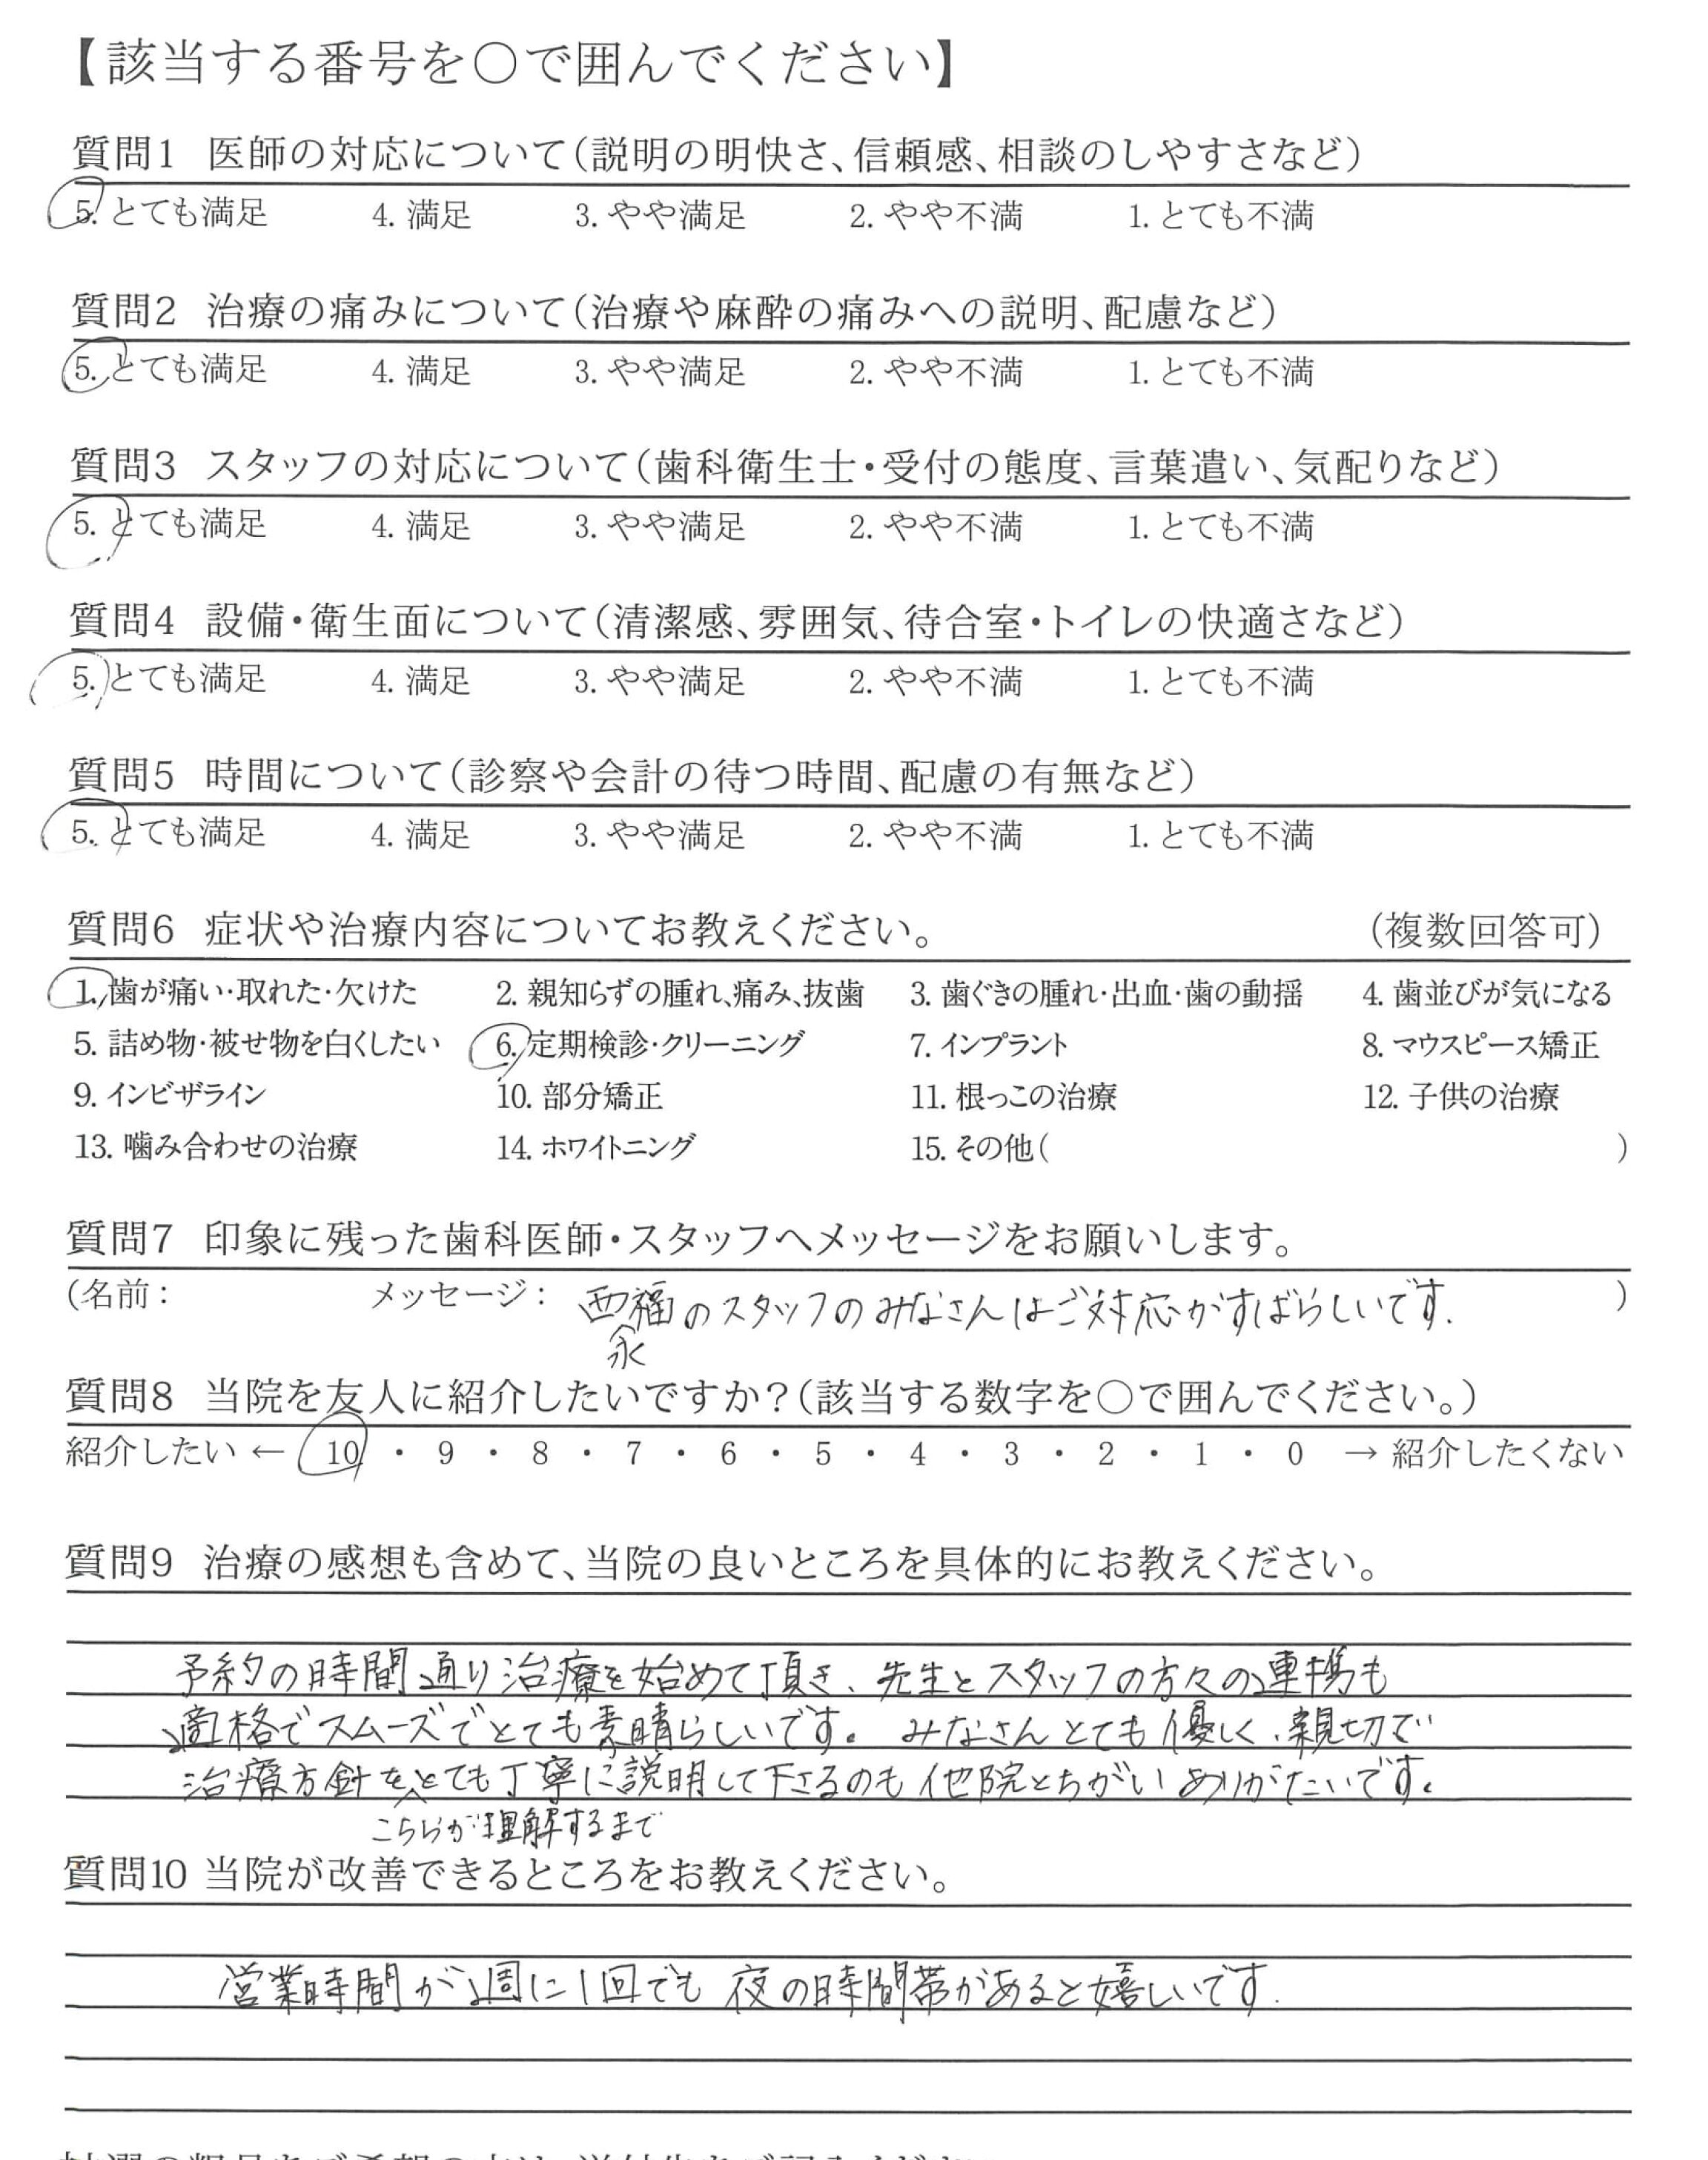 【該当する番号を○で囲んでください】
質問1 医師の対応について（説明の明快さ、信頼感、相談のしやすさなど）
5. とても満足 4. 満足 3. やや満足 2. やや不満 1. とても不満
質問2 治療の痛みについて（治療や麻酔の痛みへの説明、配慮など）
5. とても満足 4. 満足 3. やや満足 2. やや不満 1. とても不満
質問3 スタッフの対応について（歯科衛生士・受付の態度、言葉遣い、気配りなど）
5. とても満足 4. 満足 3. やや満足 2. やや不満 1. とても不満
質問4 設備・衛生面について（清潔感、雰囲気、待合室・トイレの快適さなど）
5. とても満足 4. 満足 3. やや満足 2. やや不満 1. とても不満
質問5 時間について（診察や会計の待つ時間、配慮の有無など）
5. とても満足 4. 満足 3. やや満足 2. やや不満 1. とても不満
質問6 症状や治療内容についてお教えください。 （複数回答可）
1. 歯が痛い・取れた・欠けた 2. 親知らずの腫れ、痛み、抜歯 3. 歯ぐきの腫れ・出血・歯の動揺 4. 歯並びが気になる
5. 詰め物・被せ物を白くしたい 6. 定期検診・クリーニング 7. インプラント 8. マウスピース矯正
9. インビザライン 10. 部分矯正 11. 根っこの治療 12. 子供の治療
13. 噛み合わせの治療 14. ホワイトニング 15. その他（ ）
質問7 印象に残った歯科医師・スタッフへメッセージをお願いします。
（名前： メッセージ： 西福のスタッフのみなさんはご対応がすばらしいです. ）
永
質問8 当院を友人に紹介したいですか？（該当する数字を○で囲んでください。）
紹介したい ← 10 ・ 9 ・ 8 ・ 7 ・ 6 ・ 5 ・ 4 ・ 3 ・ 2 ・ 1 ・ 0 → 紹介したくない
質問9 治療の感想も含めて、当院の良いところを具体的にお教えください。
予約の時間通り治療を始めて頂き、先生とスタッフの方々の連携も
適格でスムーズでとても素晴らしいです。みなさんとても優しく、親切で
治療方針をとても丁寧に説明して下さるのも他院とちがいありがたいです。
こちらが理解するまで
質問10 当院が改善できるところをお教えください。
営業時間が週に1回でも夜の時間帯があると嬉しいです.